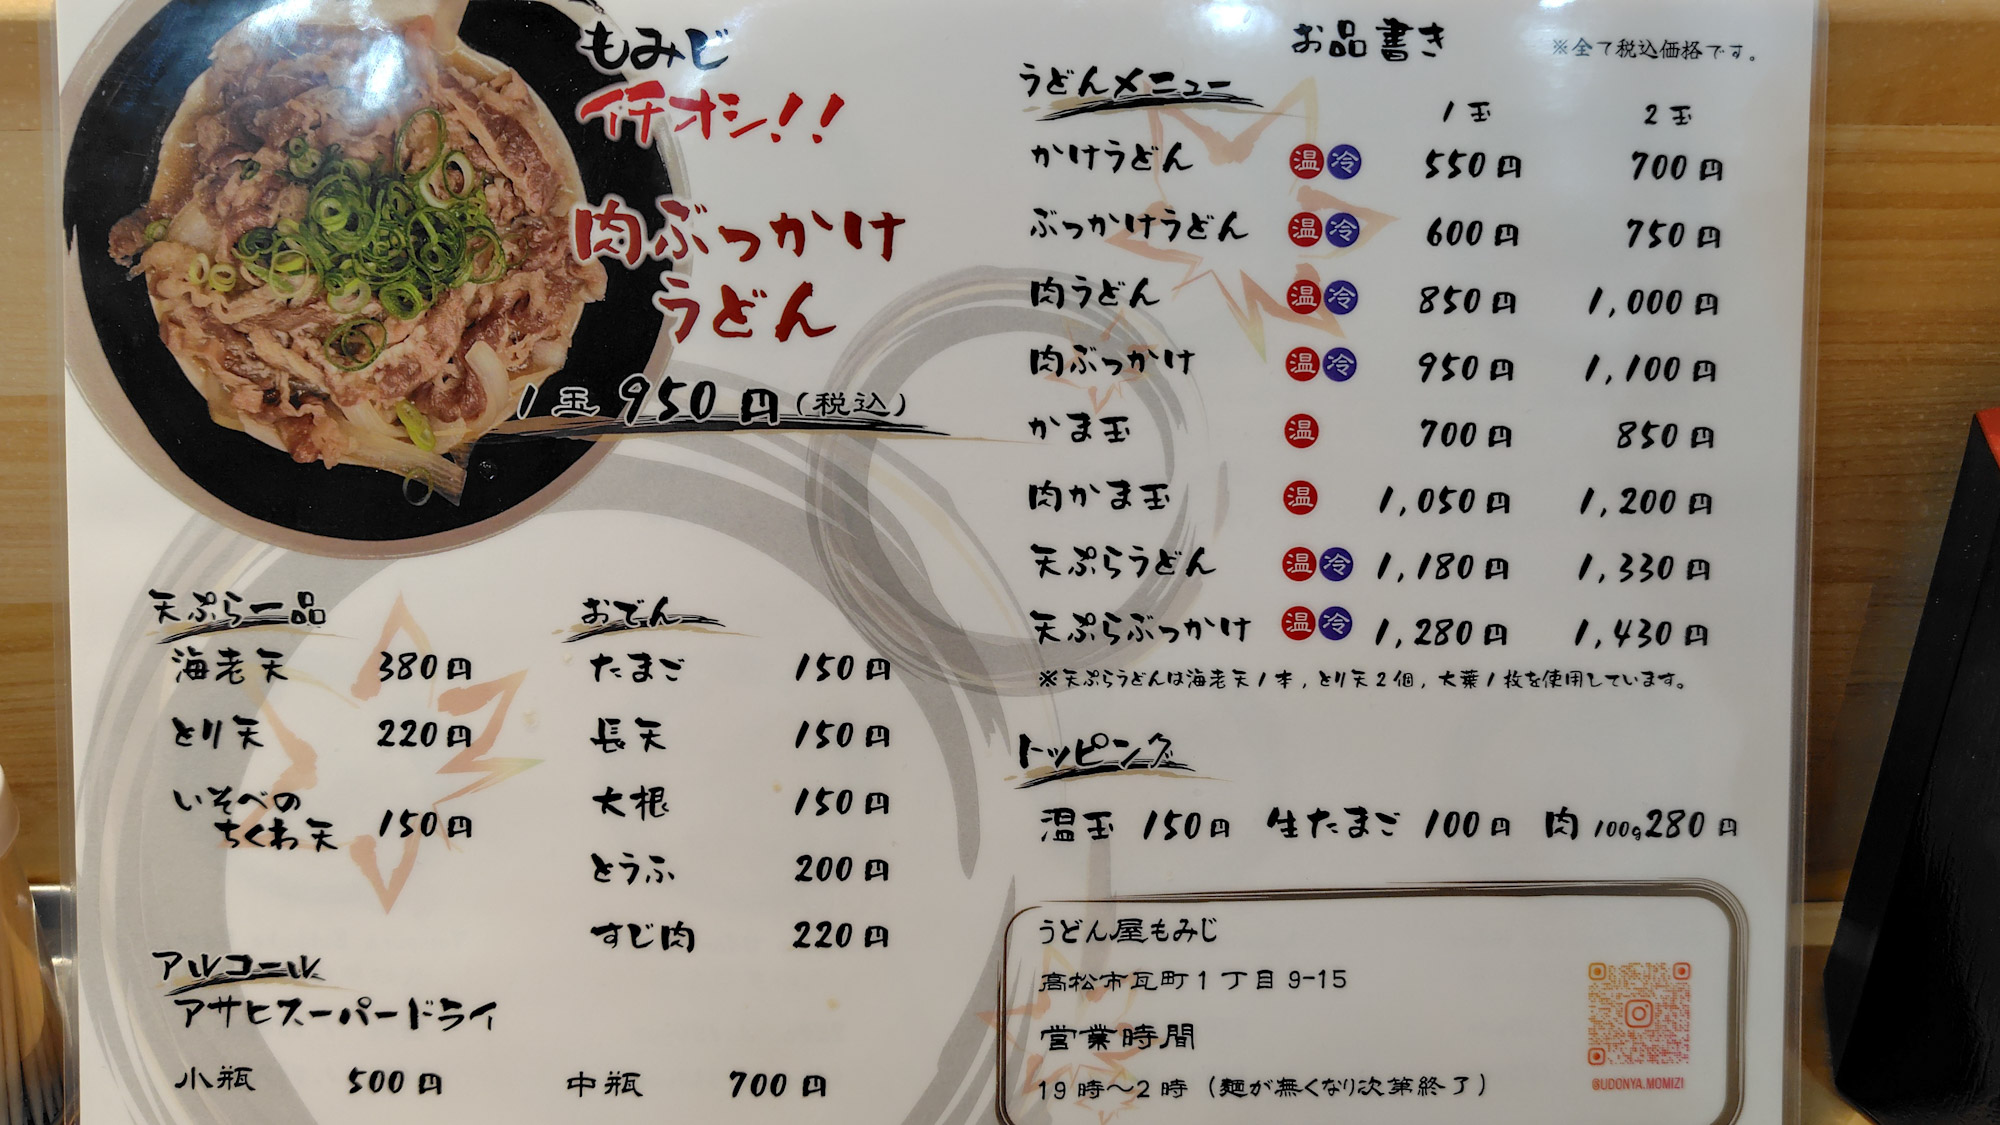 もみじ
イチオシ!!
肉ぶっかけ
うどん
1玉 950円(税込)
お品書き ※全て税込価格です。
うどんメニュー
1玉 2玉
かけうどん 温 冷 550円 700円
ぶっかけうどん 温 冷 600円 750円
肉うどん 温 冷 850円 1,000円
肉ぶっかけ 温 冷 950円 1,100円
かま玉 温 700円 850円
肉かま玉 温 1,050円 1,200円
天ぷらうどん 温 冷 1,180円 1,330円
天ぷらぶっかけ 温 冷 1,280円 1,430円
※天ぷらうどんは海老天1本,とり天2個,大葉1枚を使用しています。
トッピング
温玉 150円 生たまご 100円 肉 100g280円
天ぷら一品
海老天 380円
とり天 220円
いそべの
ちくわ天 150円
おでん
たまご 150円
長天 150円
大根 150円
とうふ 200円
すじ肉 220円
アルコール
アサヒスーパードライ
小瓶 500円 中瓶 700円
うどん屋もみじ
高松市瓦町1丁目9-15
営業時間
19時～2時(麺が無くなり次第終了)
@UDONYA.MOMIZI